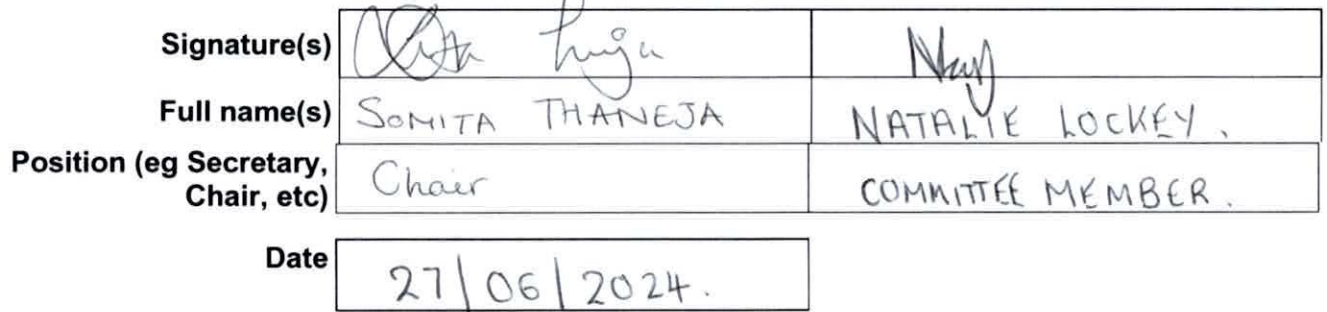 Signature(s)
Full name(s) SOMITA THANEJA NATALIE LOCKEY.
Position (eg Secretary,
Chair, etc) Chair COMMITTEE MEMBER.
Date 27/06/2024.